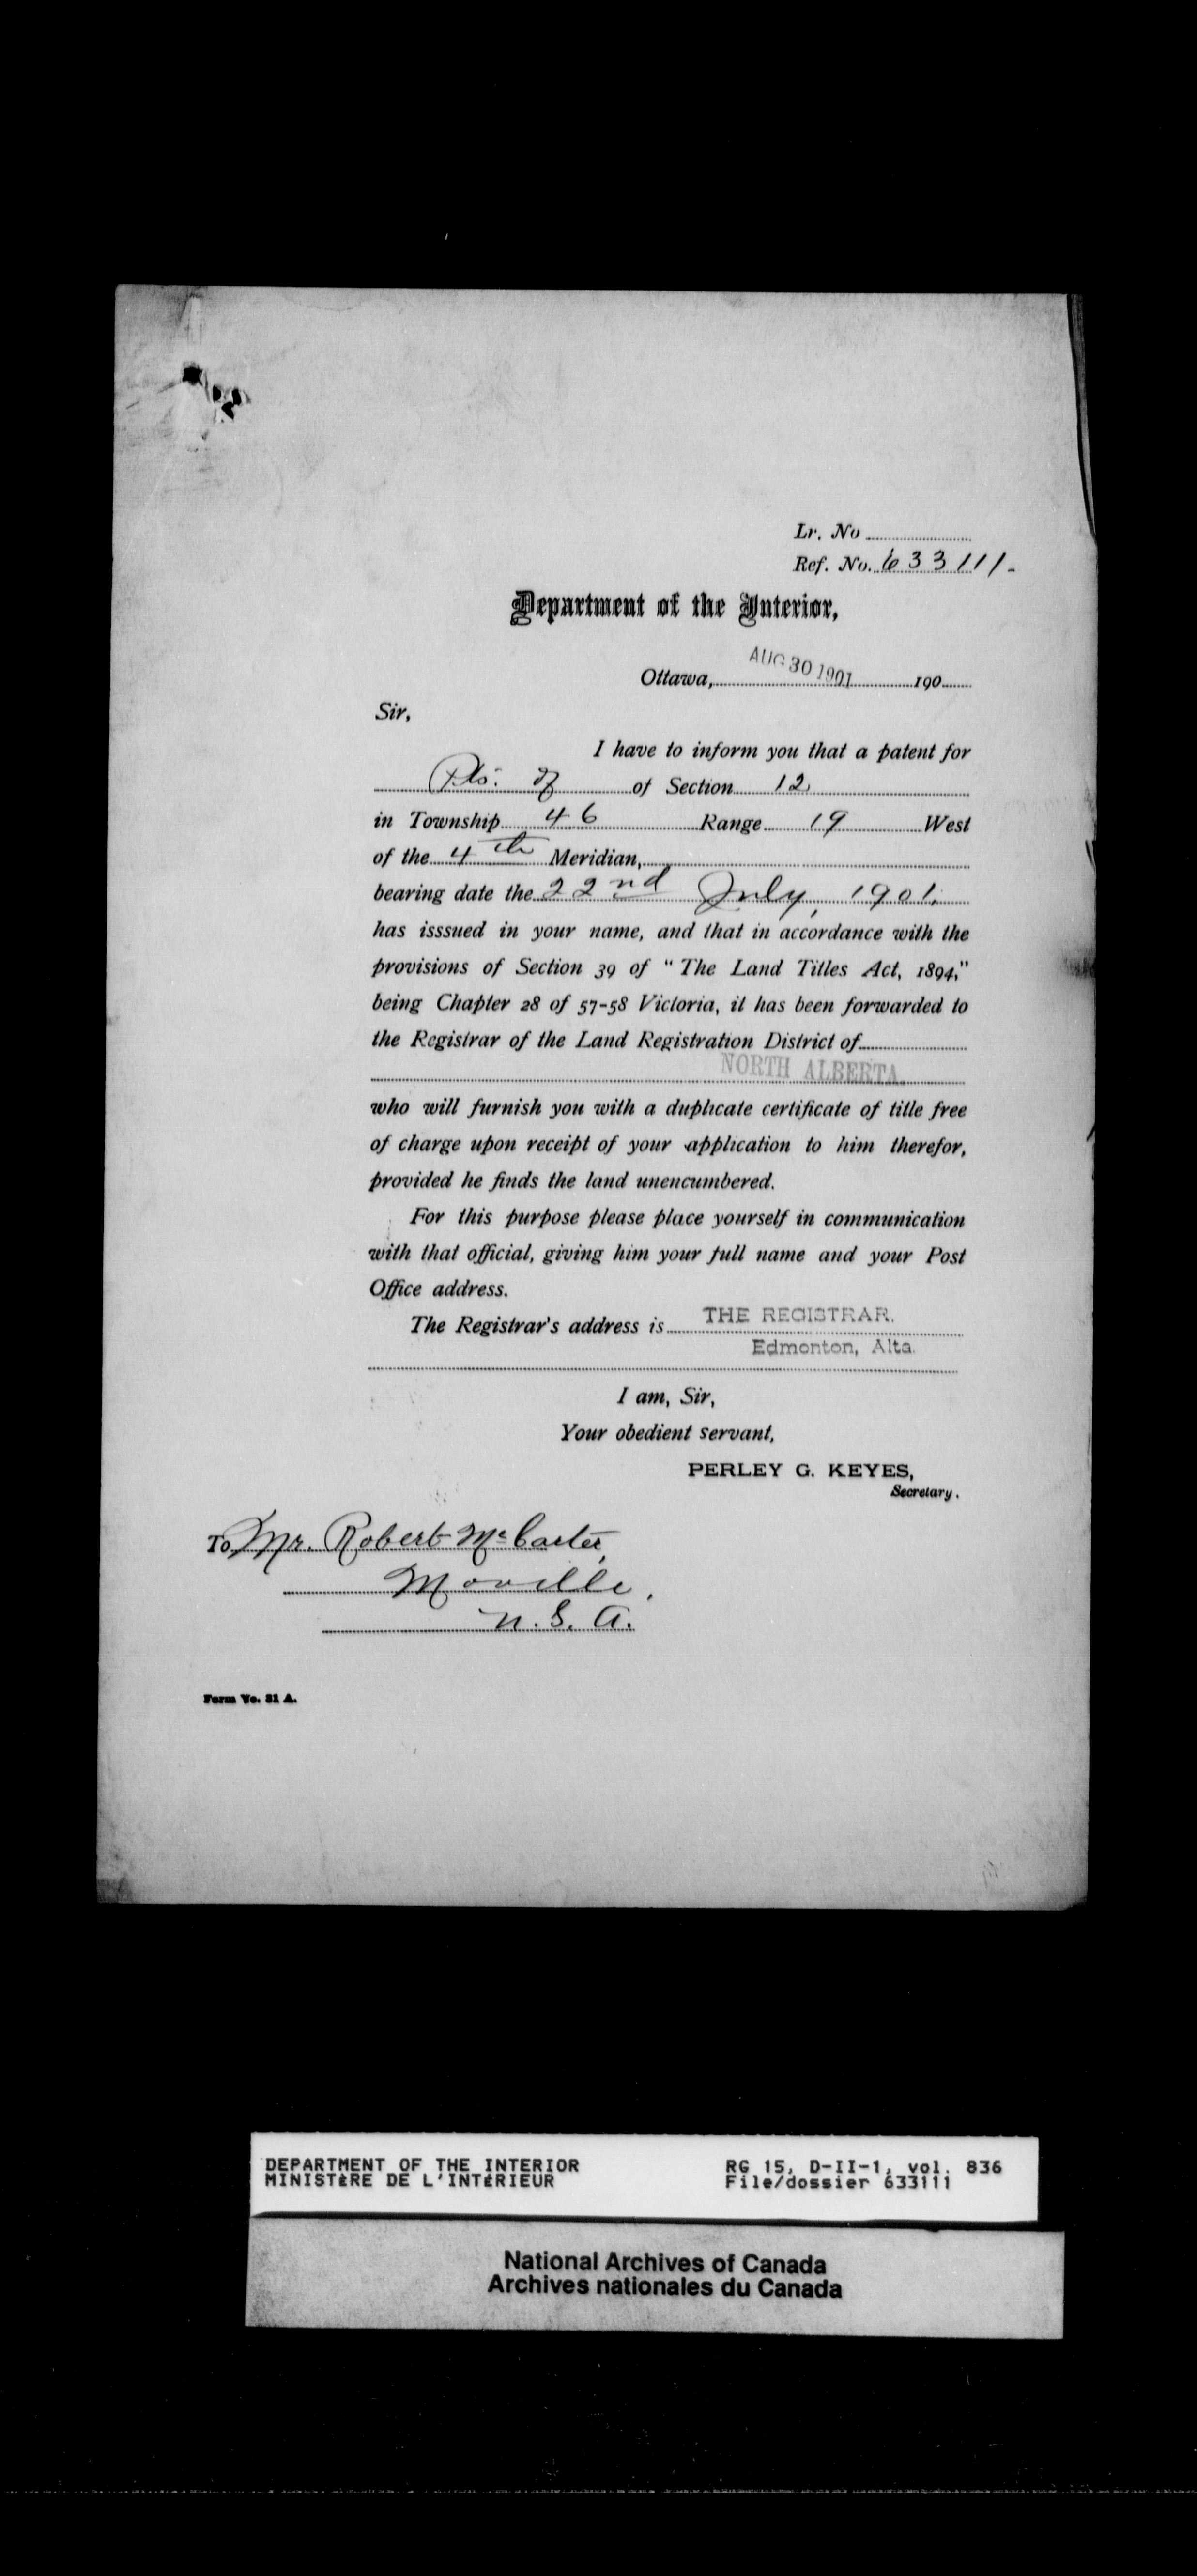 Lr. No
Ref. No. 633111.
Department of the Interior,
Ottawa, AUG 30 1901 190
Sir,
I have to inform you that a patent for
Pts. of of Section 12
in Township 46 Range 19 West
of the 4th Meridian,
bearing date the 22nd July, 1901.
has isssued in your name, and that in accordance with the
provisions of Section 39 of "The Land Titles Act, 1894,"
being Chapter 28 of 57-58 Victoria, it has been forwarded to
the Registrar of the Land Registration District of
NORTH ALBERTA.
who will furnish you with a duplicate certificate of title free
of charge upon receipt of your application to him therefor,
provided he finds the land unencumbered.
For this purpose please place yourself in communication
with that official, giving him your full name and your Post
Office address.
The Registrar's address is THE REGISTRAR.
Edmonton, Alta.
I am, Sir,
Your obedient servant,
PERLEY G. KEYES,
Secretary.
To Mr. Robert McCarter,
Moville,
U.S.A.
Form No. 31 A.
DEPARTMENT OF THE INTERIOR RG 15, D-II-1, vol. 836
MINISTÈRE DE L'INTÉRIEUR File/dossier 633111
National Archives of Canada
Archives nationales du Canada